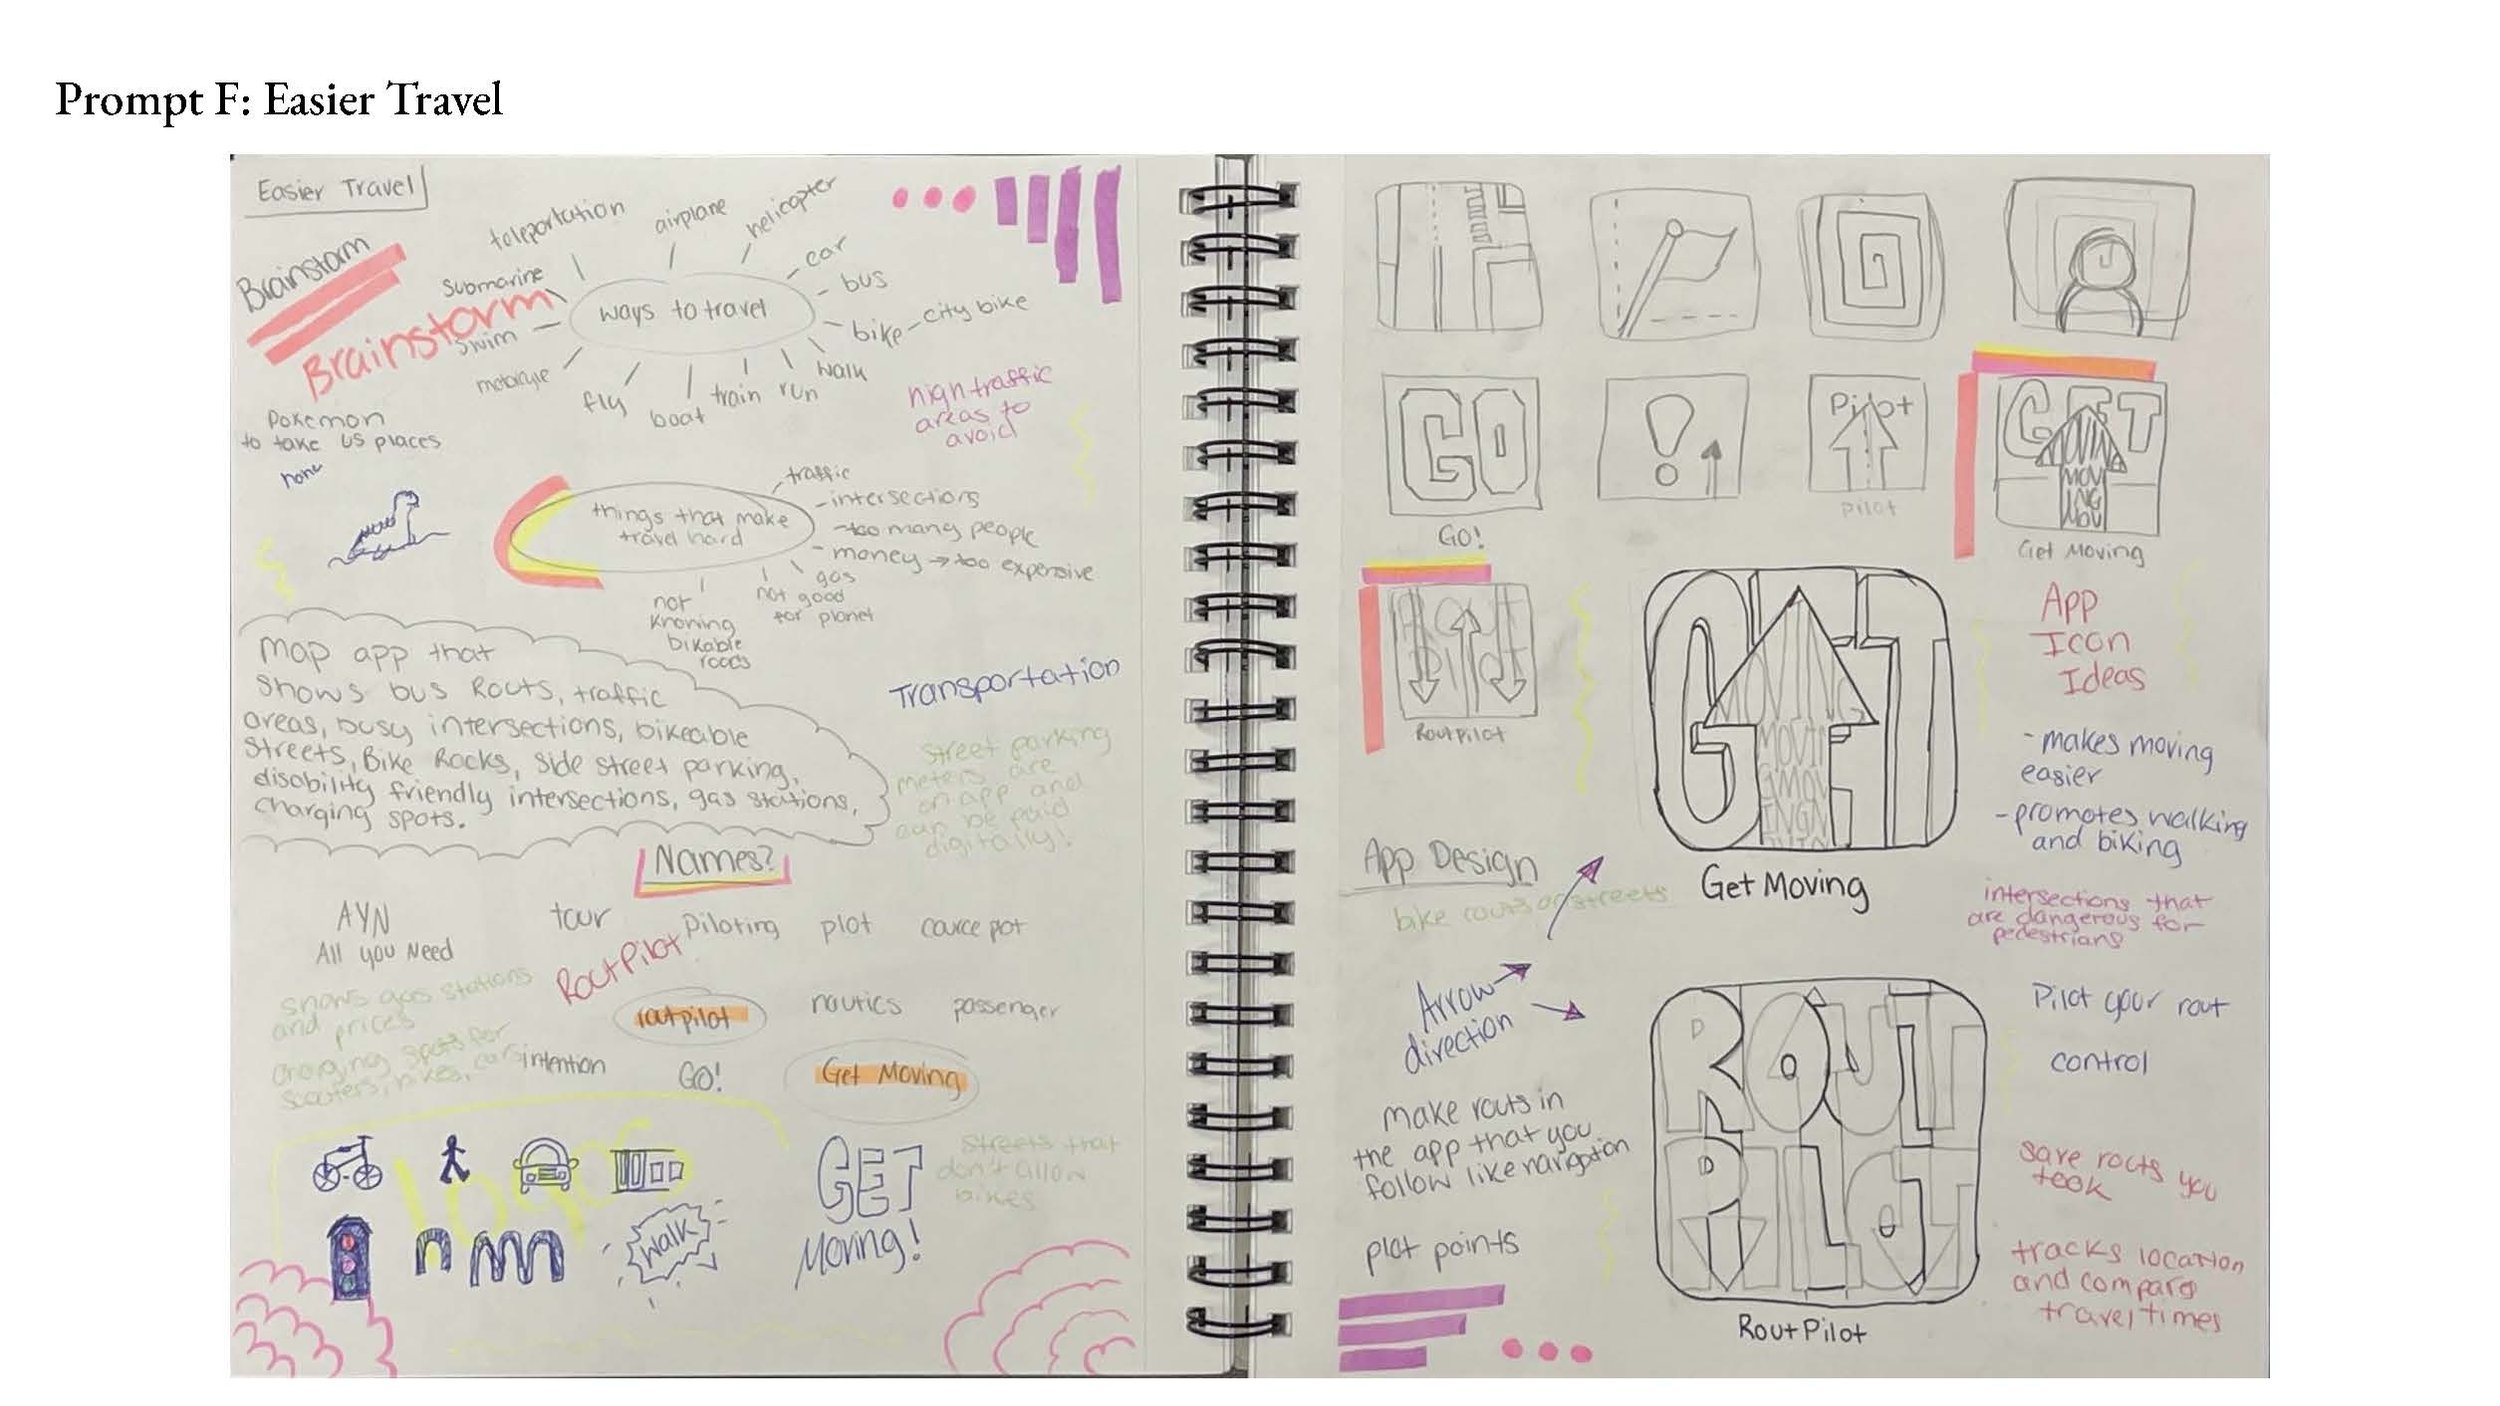 Prompt F: Easier Travel
Easier Travel
Brainstorm
Brainstorm
ways to travel
teleportation
airplane
helicopter
car
bus
bike - city bike
walk
run
train
boat
fly
motorcycle
swim
submarine
Pokemon
to take us places
high traffic
areas to
avoid
things that make
travel hard
traffic
intersections
too many people
money → too expensive
gas
not good
for planet
not
knoning
bikable
roads
Map app that
shows bus Routs, traffic
areas, busy intersections, bikeable
streets, Bike Racks, side street parking,
disability friendly intersections, gas stations,
charging spots.
Transportation
street parking
meters are
on app and
can be paid
digitally!
Names?
AYN
All you Need
tour
Piloting
plot
cource plot
RoutPilot
routpilot
nautics
passenger
intention
GO!
Get Moving
shows gas stations
and prices
charging spots for
scooters, bikes, cars
logos
walk
GET
Moving!
streets that
don't allow
bikes
GO
GO!
!
Pilot
Pilot
GET
MOVING
MOV
ING
MOV
Get Moving
Pilot
RoutPilot
App
Icon
Ideas
GET
MOVING
MOVIN
GMOV
INGN
Get Moving
- makes moving
easier
- promotes walking
and biking
App Design
bike routs or streets
intersections that
are dangerous for
pedestrians
Arrow
direction
Pilot your rout
control
make routs in
the app that you
follow like navigation
plot points
ROUT
PILOT
RoutPilot
save routs you
took
tracks location
and compares
travel times